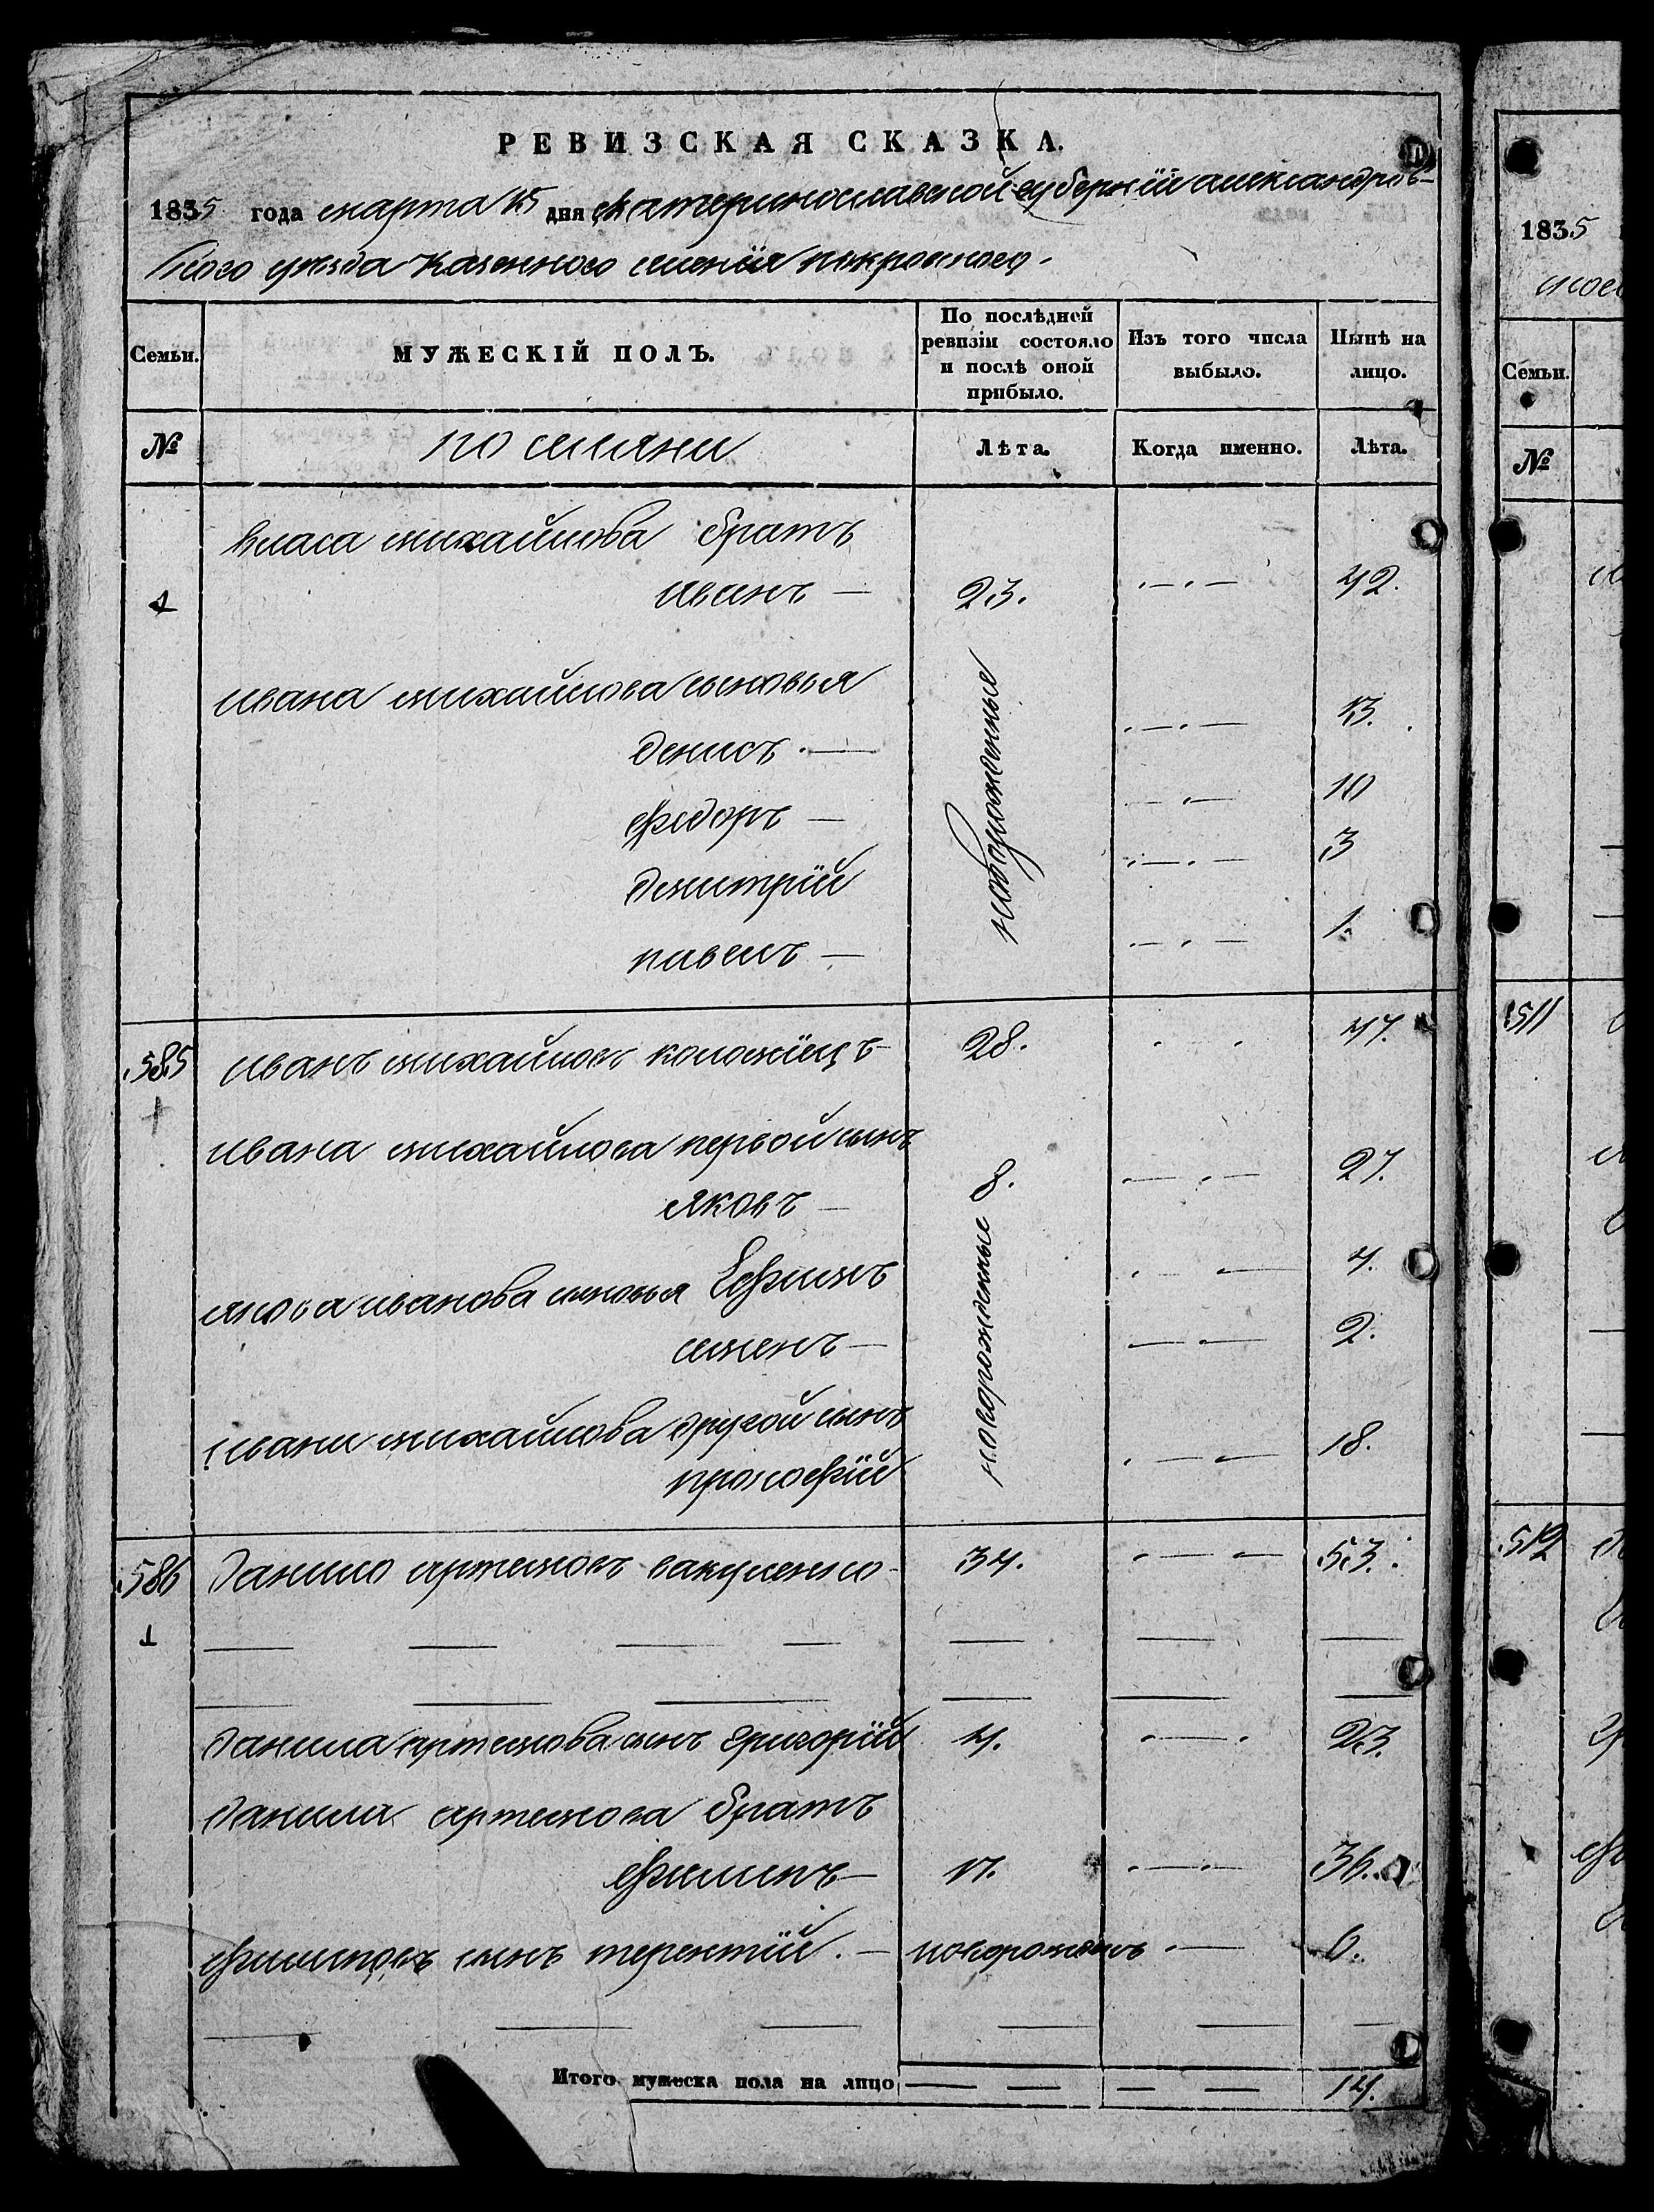 РЕВИЗСКАЯ СКАЗКА.
1835 года марта 15 дня екатеринославской губернїи александров-
ского уезда казенного селенїя покровского.
Семьи.
МУЖЕСКІЙ ПОЛЪ.
По послѣдней ревизіи состояло и послѣ оной прибыло.
Изъ того числа выбыло.
Нынѣ на лицо.
№
Лѣта.
Когда именно.
Лѣта.
Власа михайлова братъ
иванъ — 23. 42.
ивана михайлова сыновья
новорожденные
денисъ — 13.
федоръ — 10
дмитрїй 3
павелъ — 1.
585 иванъ михайловъ коломїецъ 28. 47.
ивана михайлова первой сынъ
яковъ — 8. 27.
якова иванова сыновья Ефимъ 4.
новорожденные
семенъ — 2.
ивана михайлова другой сынъ
прокофїй 18.
586 данило артемовъ вакуленко 34. 53.
данила артемова сынъ григорїй 4. 23.
данила артемова братъ
филипъ — 17. 36.
филиповъ сынъ терентїй. — 6.
Итого мужеска пола на лицо 14.
1835
Семьи.
№
511
512